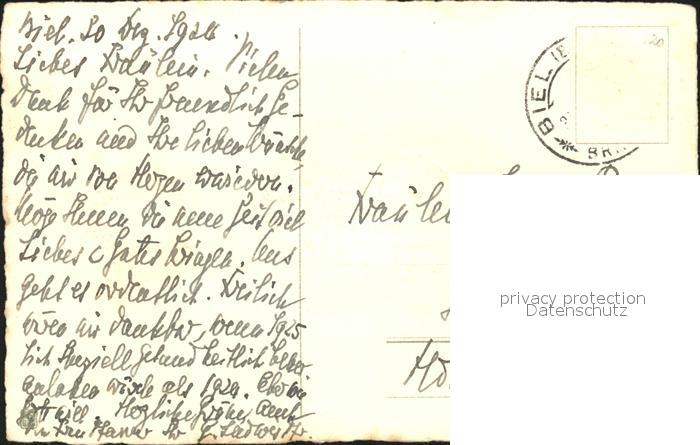 Biel. 30 Dez. 1924.
Liebes Fräulein. Vielen
Dank für Ihr freundlich Ge-
denken und Ihre lieben Wünsche,
die wir von Herzen erwidern.
Möge Ihnen die neue Zeit viel
Liebes & Gutes bringen. Uns
geht es ordentlich. Freilich
wären wir dankbar, wenn 1925
sich speziell gesundheitlich besser
als 1924.
Gott will. Herzliche Grüße, auch
Ihr
BIEL (B
BR
20
Fräulein
privacy protection
Datenschutz